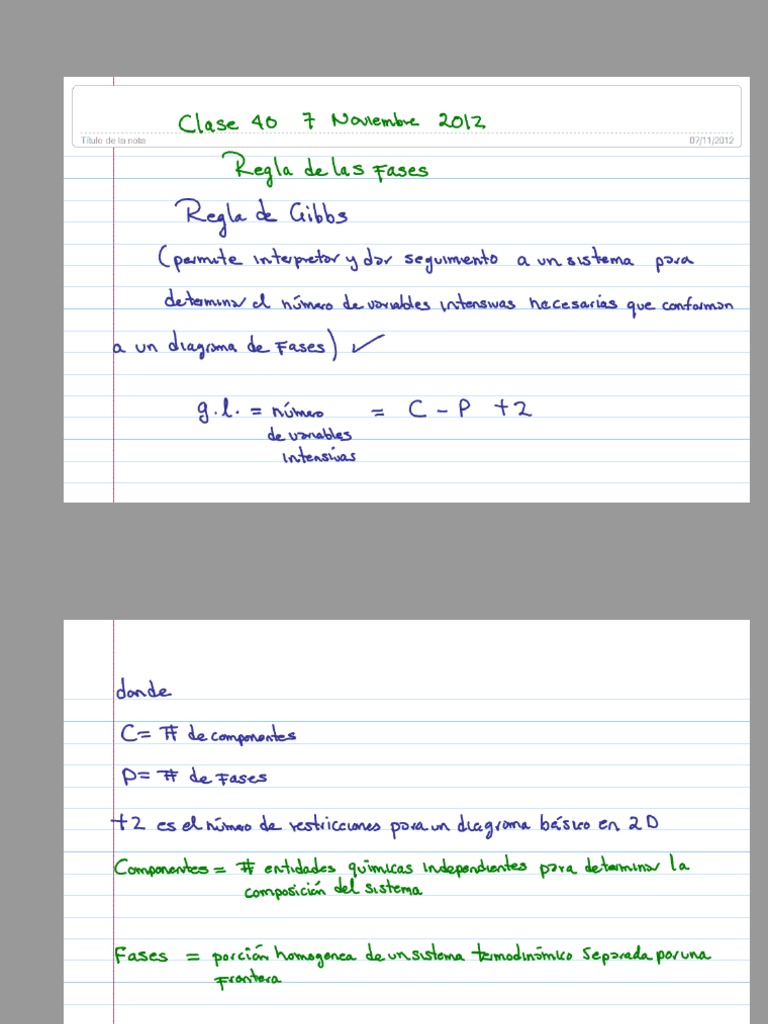 Clase 40 7 Noviembre 2012
Título de la nota 07/11/2012
Regla de las Fases
Regla de Gibbs
(permite interpretar y dar seguimiento a un sistema para
determinar el número de variables intensivas necesarias que conforman
a un diagrama de Fases) ✓
g.l. = número = C - P + 2
de variables
intensivas
donde
C = # de componentes
P = # de Fases
+2 es el número de restricciones para un diagrama básico en 2D
Componentes = # entidades químicas independientes para determinar la
composición del sistema
Fases = porción homogenea de un sistema termodinámico separada por una
Frontera